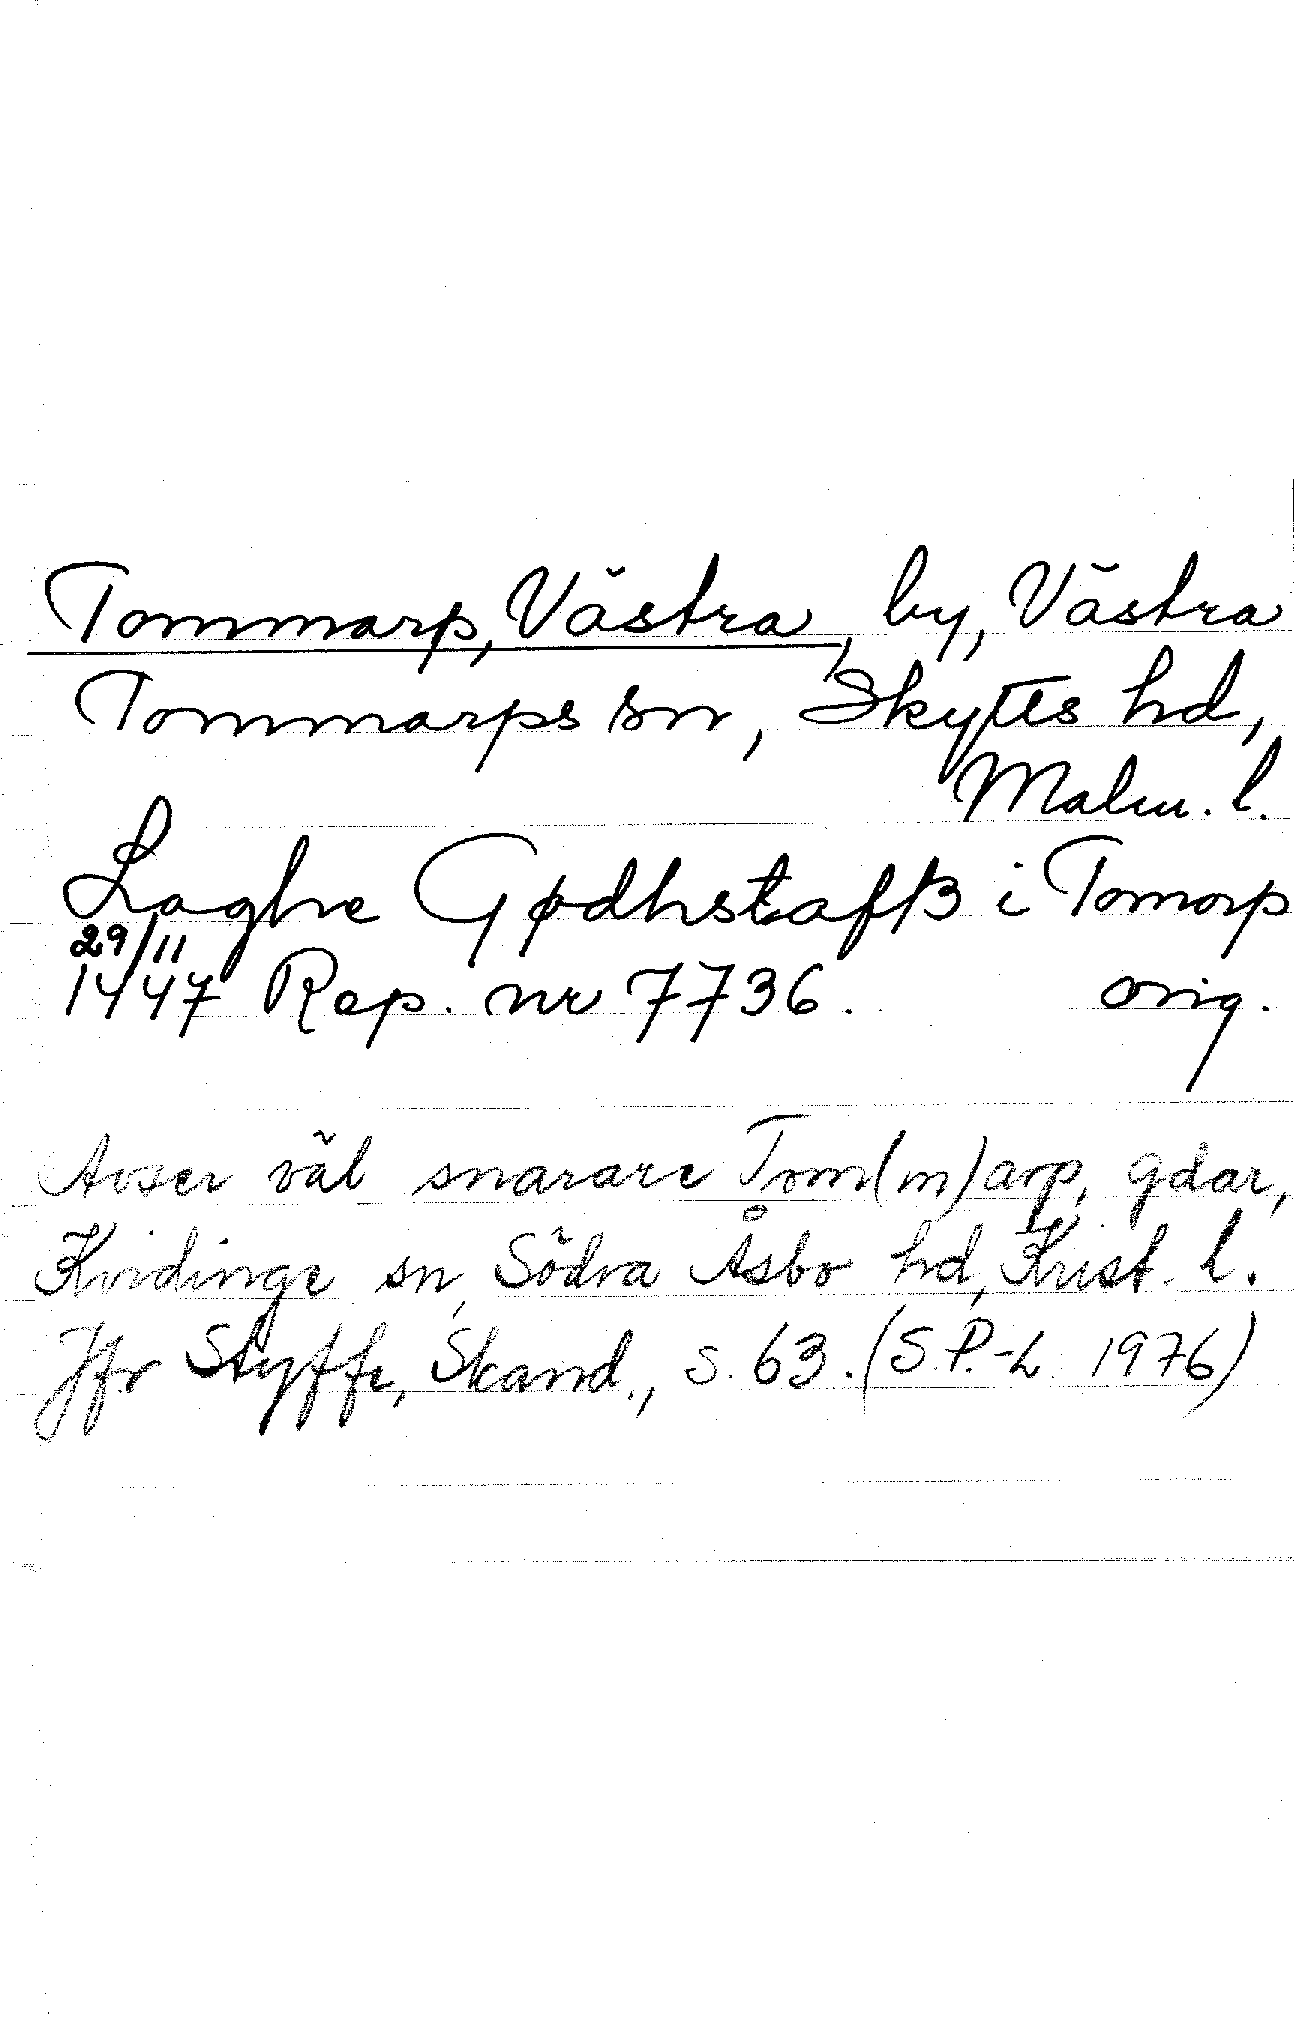 Tommarp, Västra, by, Västra
Tommarps sn, Skytts hd,
Malm. l.
Laghe Gødhstafß i Tomorp
29/11
1447 Rep. nr 7736. orig.
Avser väl snarare Tom(m)arp, gdar,
Kvidinge sn, Södra Åsbo hd, Krist. l.
Jfr Styffe, Skand., s. 63. (S.P.-L 1976)